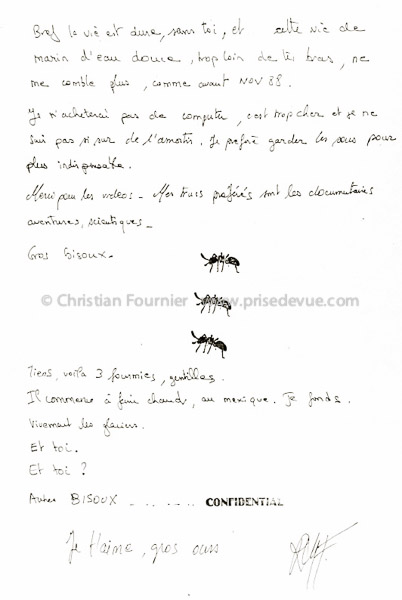 Bref la vie est dure, sans toi, et cette vie de
marin d'eau douce, trop loin de tes bras, ne
me comble plus, comme avant NOV 88.
Je n'achèterai pas de computer, c'est trop cher et je ne
suis pas si sur de l'amortir. Je préfère garder les sous pour
plus indispensable.
Merci pour les videos - Mes trucs préférés sont les documentaires
aventures, scientifiques -
Gros bisoux -
© Christian Fournier www.prisedevue.com
Tiens, voilà 3 fourmies, gentilles.
Il commence à faire chaud, au mexique. Je fonds.
Vivement les glaciers.
Et toi.
Et toi ?
Autres BISOUX - .. - .. .. CONFIDENTIAL
Je t'aime, gros ours